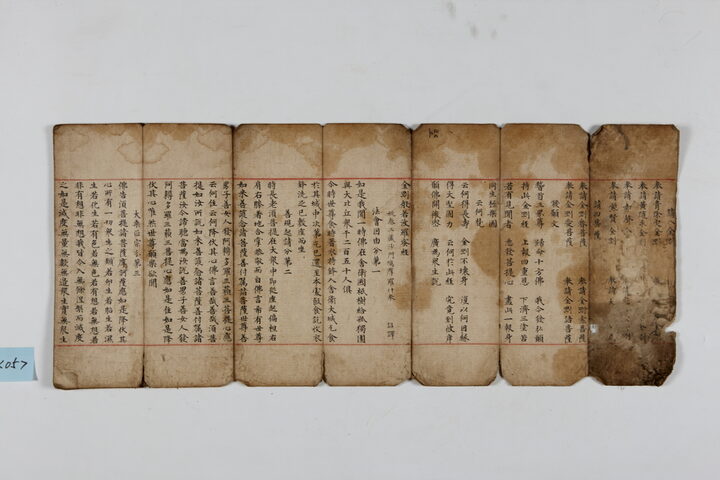 請八金剛
奉請青除災金剛
奉請黃隨求金剛
請四菩薩
奉請金剛
奉請金剛眷菩薩 奉請金剛索菩薩
奉請金剛愛菩薩 奉請金剛語菩薩
發願文
稽首三界尊 歸命十方佛 我今發弘願
持此金剛經 上報四重恩 下濟三塗苦
若有見聞者 悉發菩提心 盡此一報身
同生極樂國
云何梵
云何得長壽 金剛不壞身 復以何因緣
得大堅固力 云何於此經 究竟到彼岸
願佛開微密 廣為衆生說
金剛般若波羅蜜經
姚秦三藏法師鳩摩羅什奉 詔譯
法會因由分第一
如是我聞一時佛在舍衛國祇樹給孤獨園
與大比丘衆千二百五十人俱
尒時世尊食時著衣持鉢入舍衛大城乞食
於其城中次第乞已還至本處飯食訖收衣
鉢洗足已敷座而坐
善現起請分第二
時長老須菩提在大衆中即從座起偏袒右
肩右膝著地合掌恭敬而白佛言希有世尊
如來善護念諸菩薩善付囑諸菩薩世尊善
男子善女人發阿耨多羅三藐三菩提心應
云何住云何降伏其心佛言善哉善哉須菩
提如汝所說如來善護念諸菩薩善付囑諸
菩薩汝今諦聽當為汝說善男子善女人發
阿耨多羅三藐三菩提心應如是住如是降
伏其心唯然世尊願樂欲聞
大乘正宗分第三
佛告須菩提諸菩薩摩訶薩應如是降伏其
心所有一切衆生之類若卵生若胎生若濕
生若化生若有色若無色若有想若無想若
非有想非無想我皆令入無餘涅槃而滅度
之如是滅度無量無數無邊衆生實無衆生